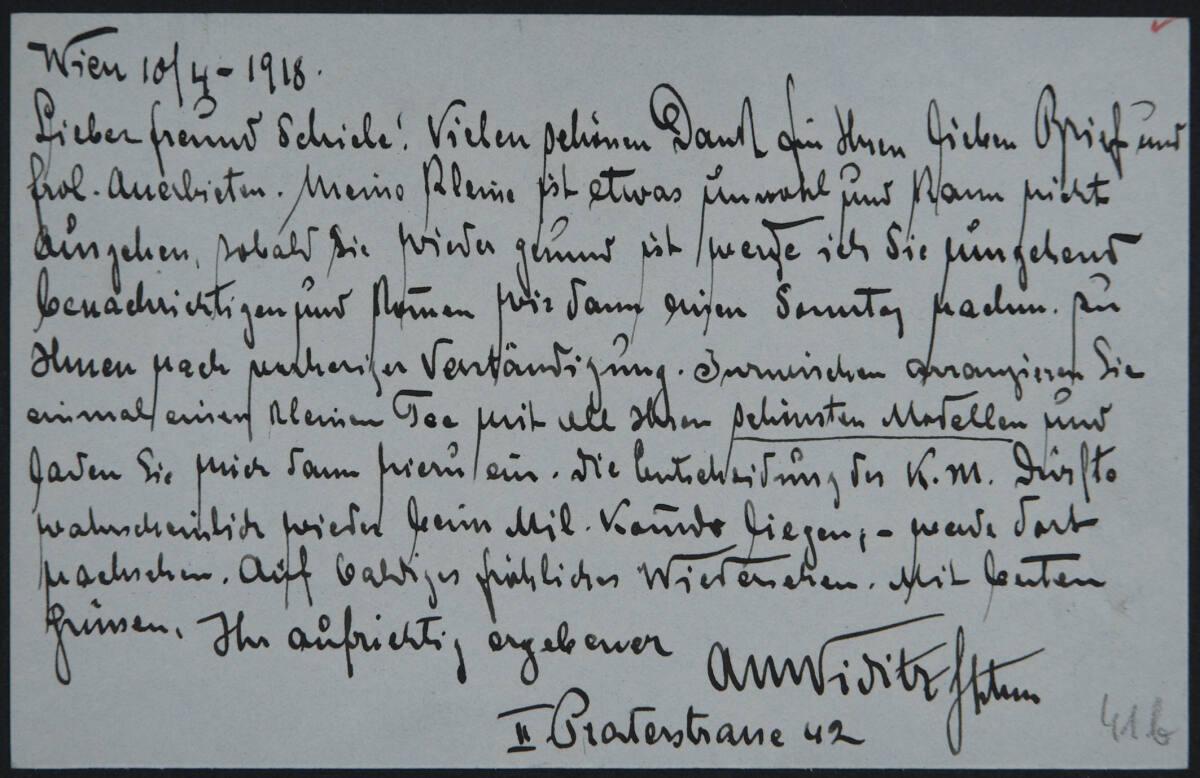 Wien 10/4 - 1918.
Lieber Freund Schiele! Vielen schönen Dank für Ihren lieben Brief und
frdl. Anerbieten. Meine Kleine ist etwas unwohl und kann nicht
ausgehen, sobald sie wieder gesund ist werde ich Sie umgehend
benachrichtigen und kom̄en wir dann einen Sonntag nachm. zu
Ihnen nach vorheriger Verständigung. Inzwischen arrangieren Sie
einmal einen kleinen Tee mit all Ihren schönsten Modellen und
laden Sie mich dann hiezu ein. Die Entscheidung des K.M. dürfte
wahrscheinlich wieder beim Mil. Kom̄do liegen; - werde dort
nachsehen. Auf baldiges fröhliches Wiedersehen. Mit besten
Grüssen, Ihr aufrichtig ergebener
Hptm
II Praterstrasse 42
41b